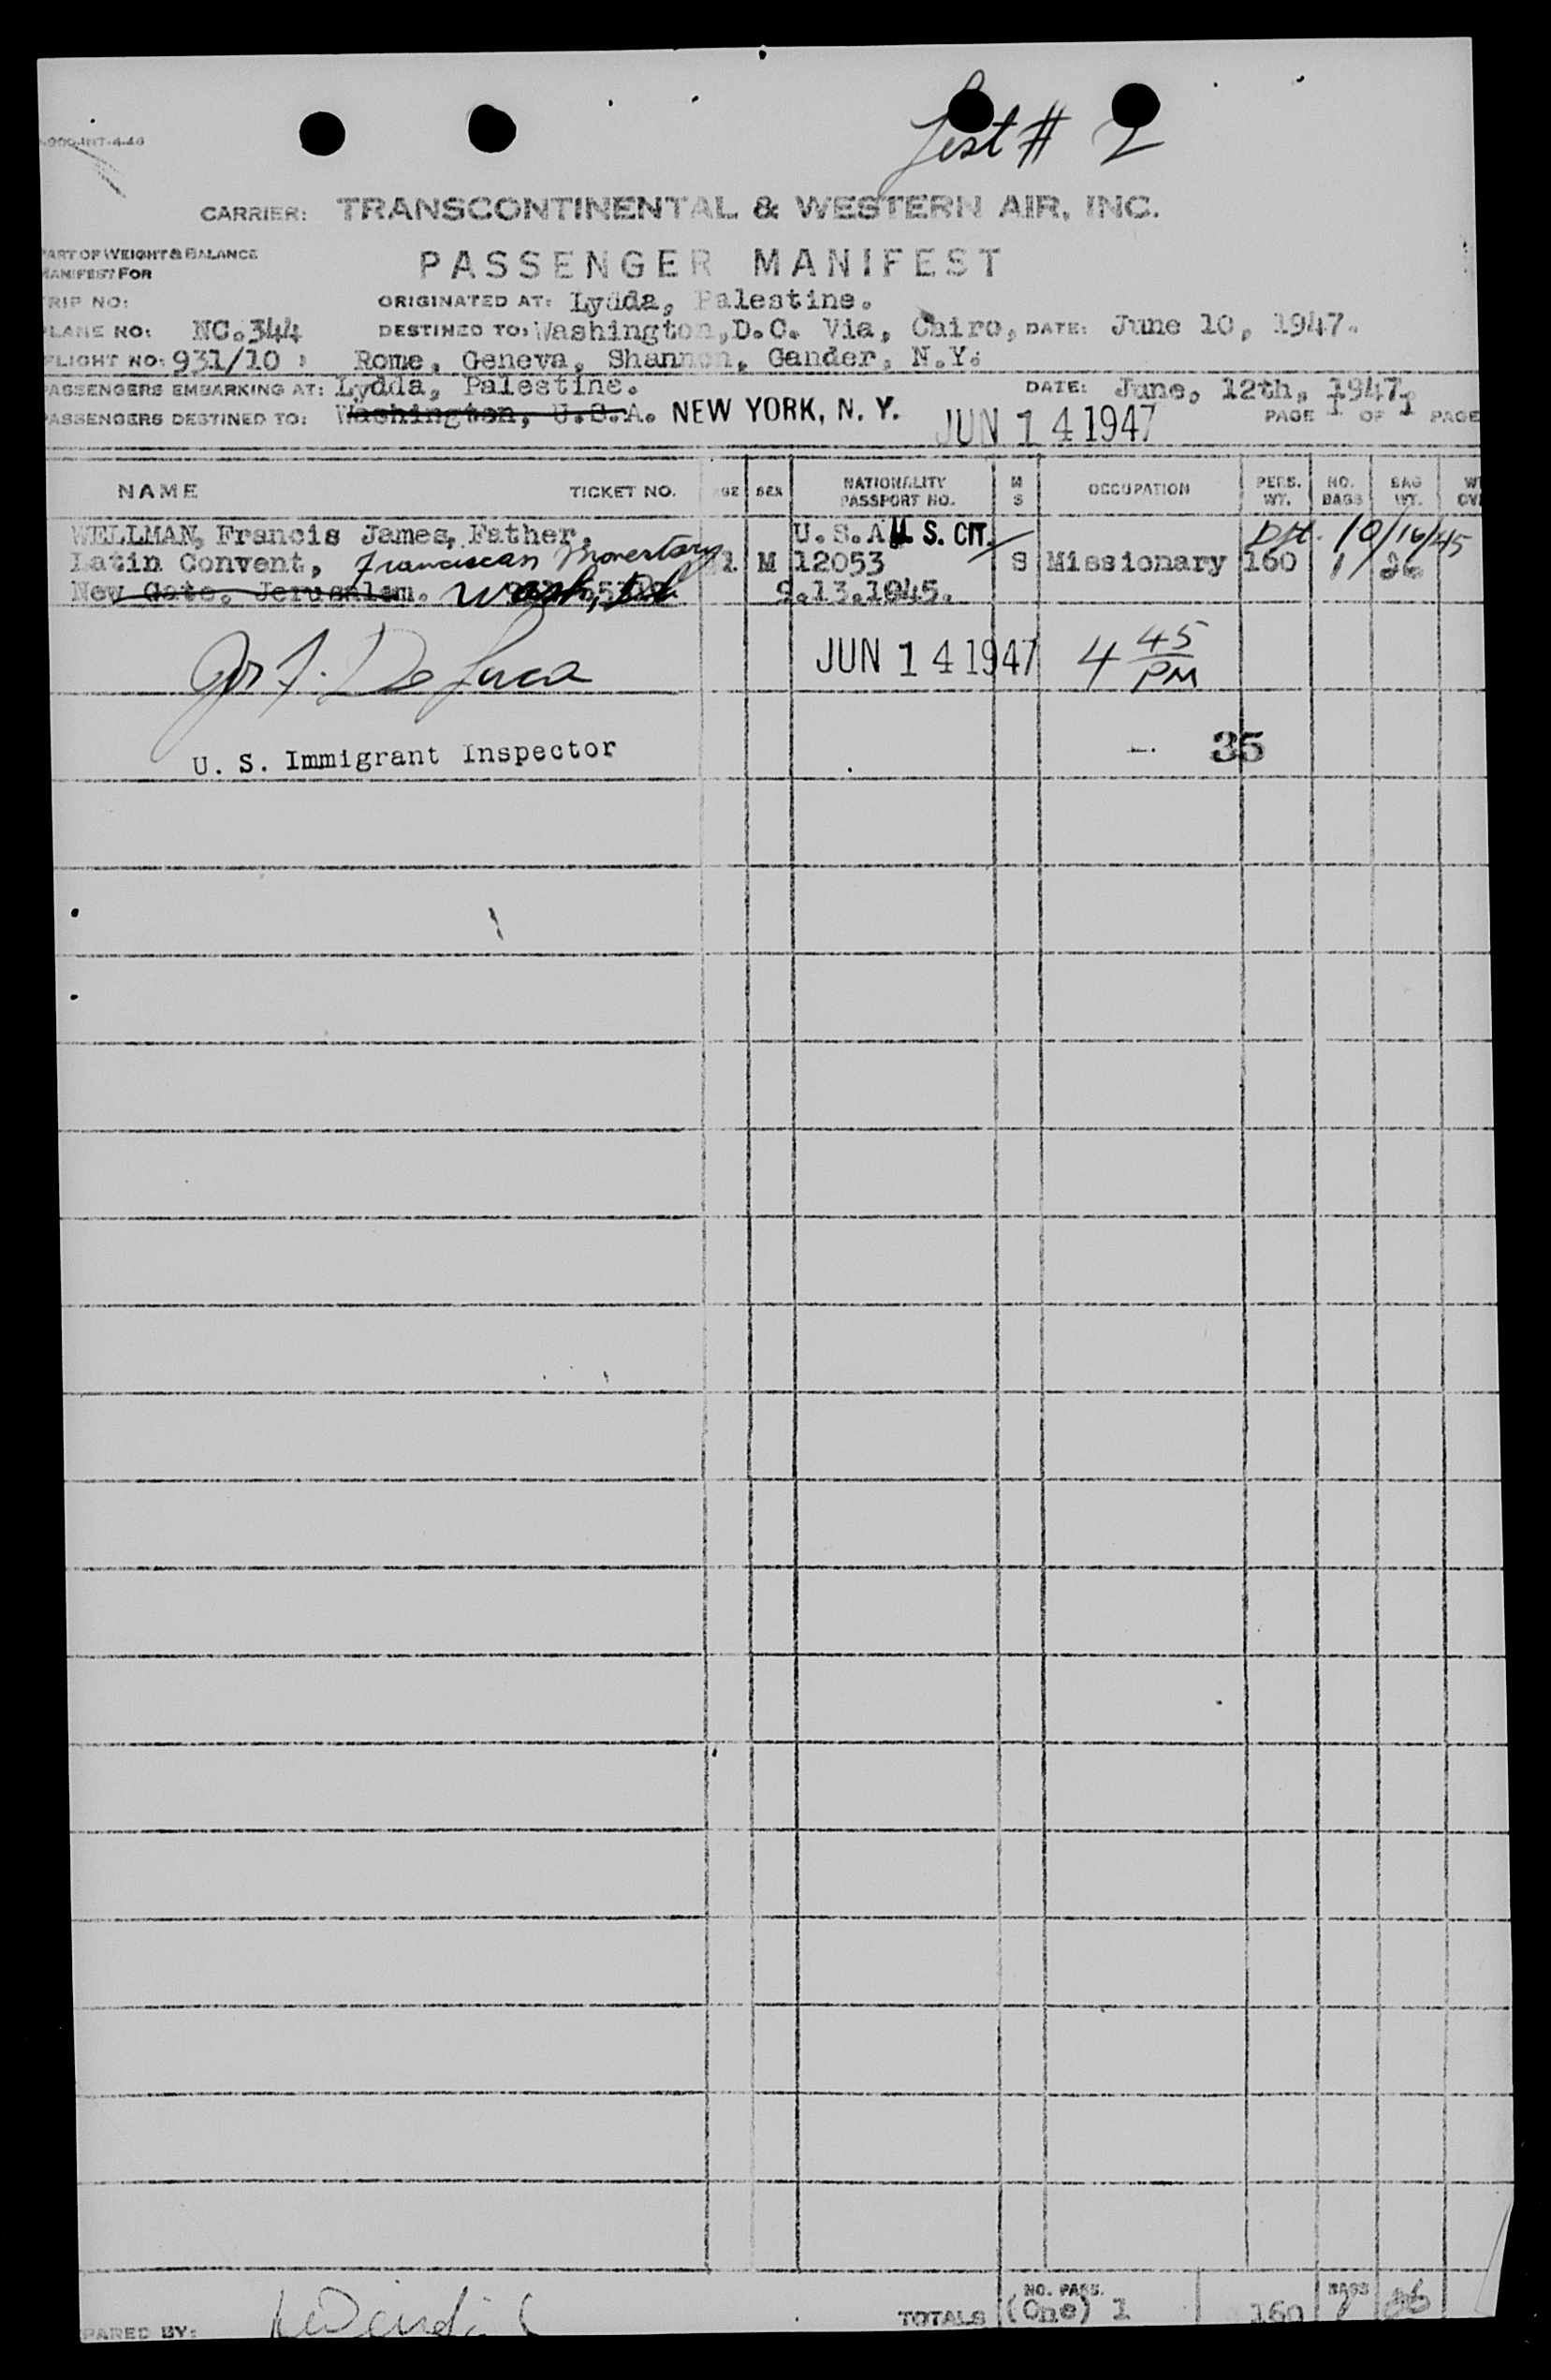 List # 2
-900-INT-4-46
CARRIER: TRANSCONTINENTAL & WESTERN AIR, INC.
PART OF WEIGHT & BALANCE
MANIFEST FOR
PASSENGER MANIFEST
TRIP NO: ORIGINATED AT: Lydda, Palestine.
PLANE NO: NC.344 DESTINED TO: Washington, D.C. Via, Cairo, DATE: June 10, 1947.
FLIGHT NO: 931/10 : Rome, Geneva, Shannon, Gander, N.Y.
PASSENGERS EMBARKING AT: Lydda, Palestine. DATE: June, 12th, 1947.
PASSENGERS DESTINED TO: Washington, U.S.A. NEW YORK, N. Y. JUN 14 1947 PAGE 1 OF 1 PAGE
NAME TICKET NO. AGE SEX NATIONALITY PASSPORT NO. M S OCCUPATION PERS. WT. NO. BAGS BAG WT.
WELLMAN, Francis James, Father, U.S.A U. S. CIT. Dpt. 10/16/45
Latin Convent, Franciscan Monastery M 12053 S Missionary 160 1 26
New Gate, Jerusalem. Wash, 9.13.1945.
Jos F. De Luca JUN 14 1947 4 45 PM
U. S. Immigrant Inspector 35
PREPARED BY: TOTALS NO. PASS. (One) 1 160 BAGS 1 26